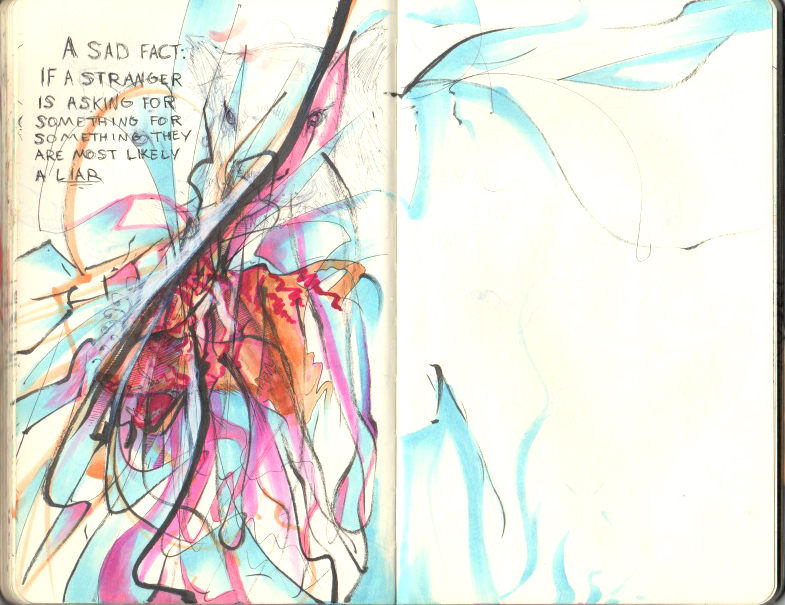 A SAD FACT:
IF A STRANGER
IS ASKING FOR
SOMETHING FOR
SOMETHING THEY
ARE MOST LIKELY
A LIAR